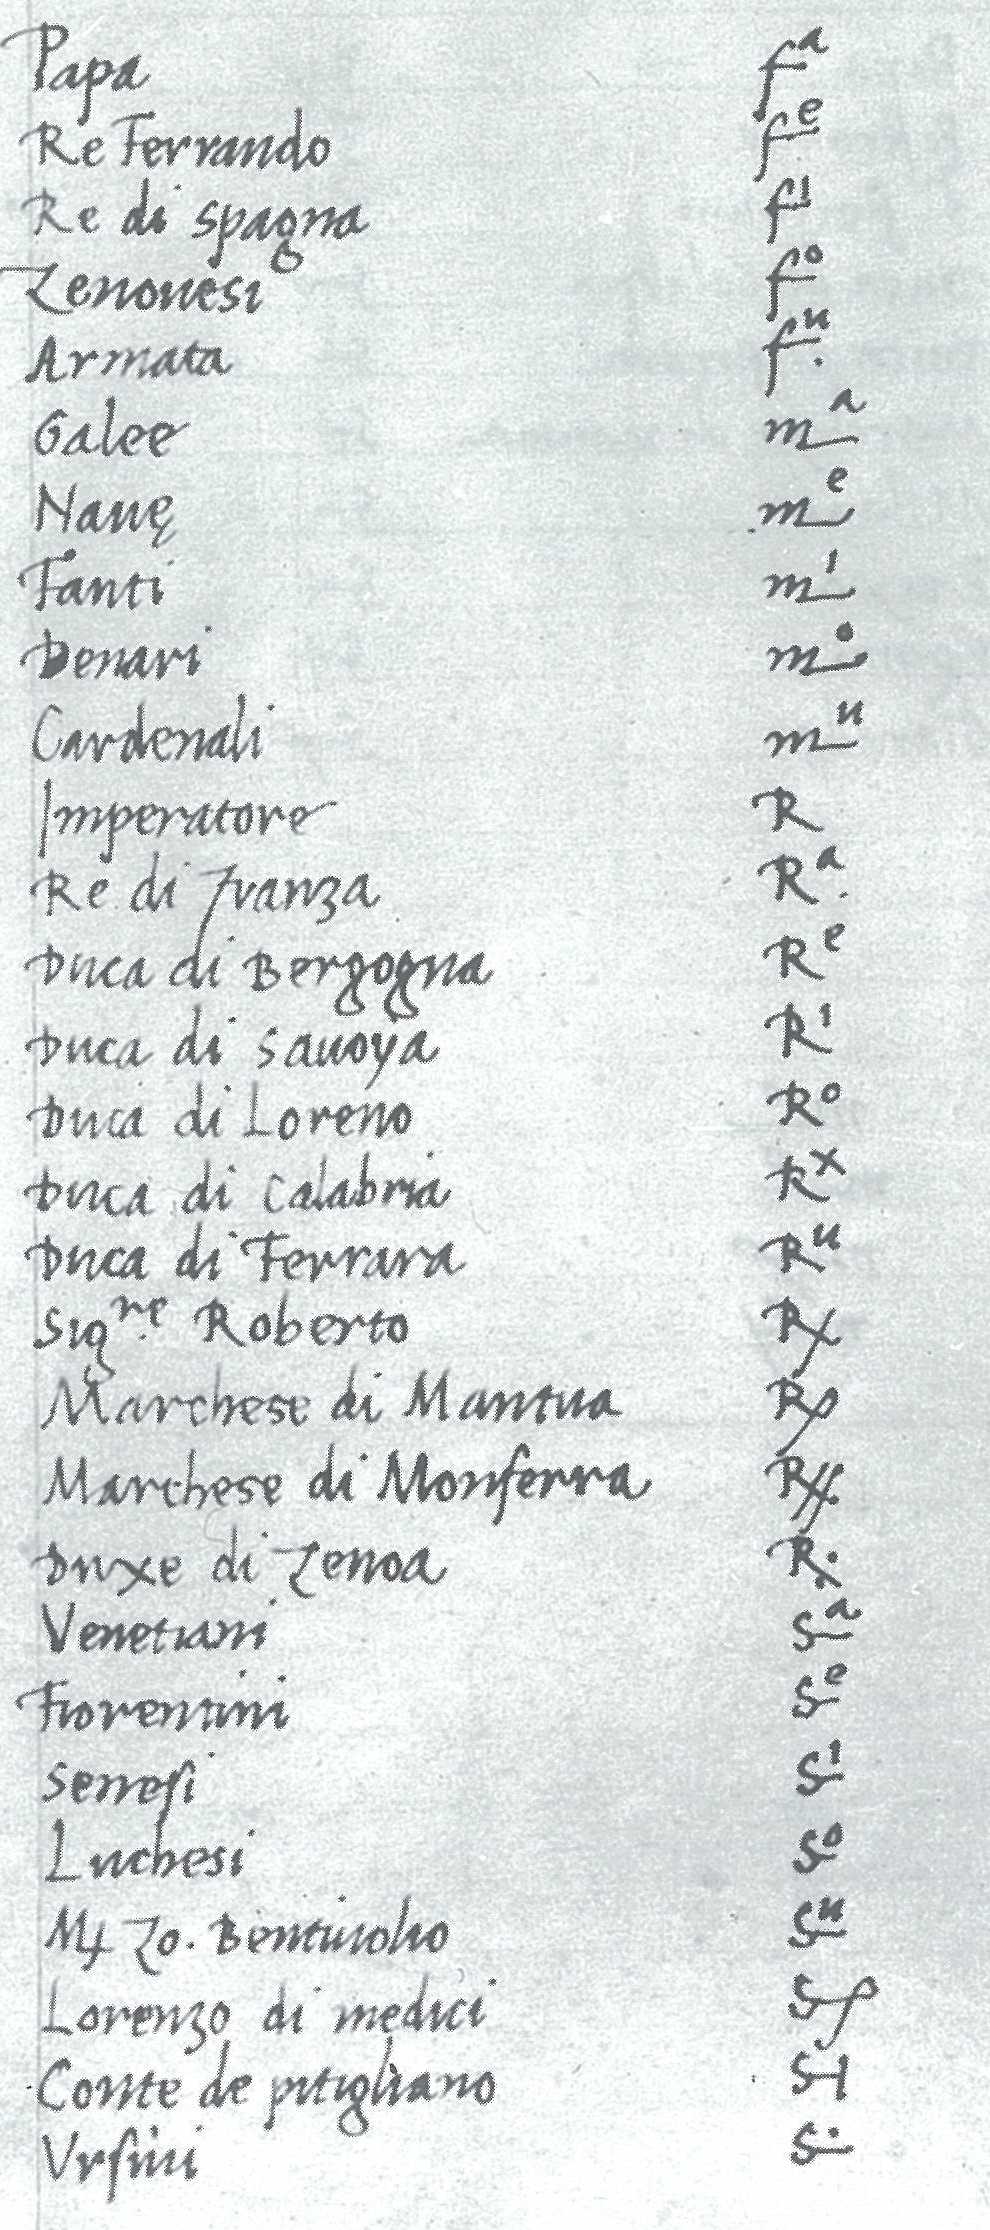 Papa fᵃ
Re Ferrando fᵉ
Re di Spagna fⁱ
Zenonesi fᵒ
Armata fᵘ.
Galee mᵃ
Nauę mᵉ
Fanti mⁱ
Denari mᵒ
Cardenali mᵘ
Imperatore R
Re di Franza Rᵃ.
Duca di Bergogna Rᵉ
Duca di Sauoya Rⁱ
Duca di Loreno Rᵒ
Duca di Calabria Rˣ
Duca di Ferrara Rᵘ
Sigʳᵉ. Roberto R
Marchese di Mantua R
Marchese di Monferra R
Duxe di Zenoa R
Venetiani Sᵃ
Fiorentini Sᵉ
Senesi Sⁱ
Luchesi Sᵒ
Zo. Bentiuolio Sᵘ
Lorenzo di medici S
Conte de pitigliano S
Vrsini S